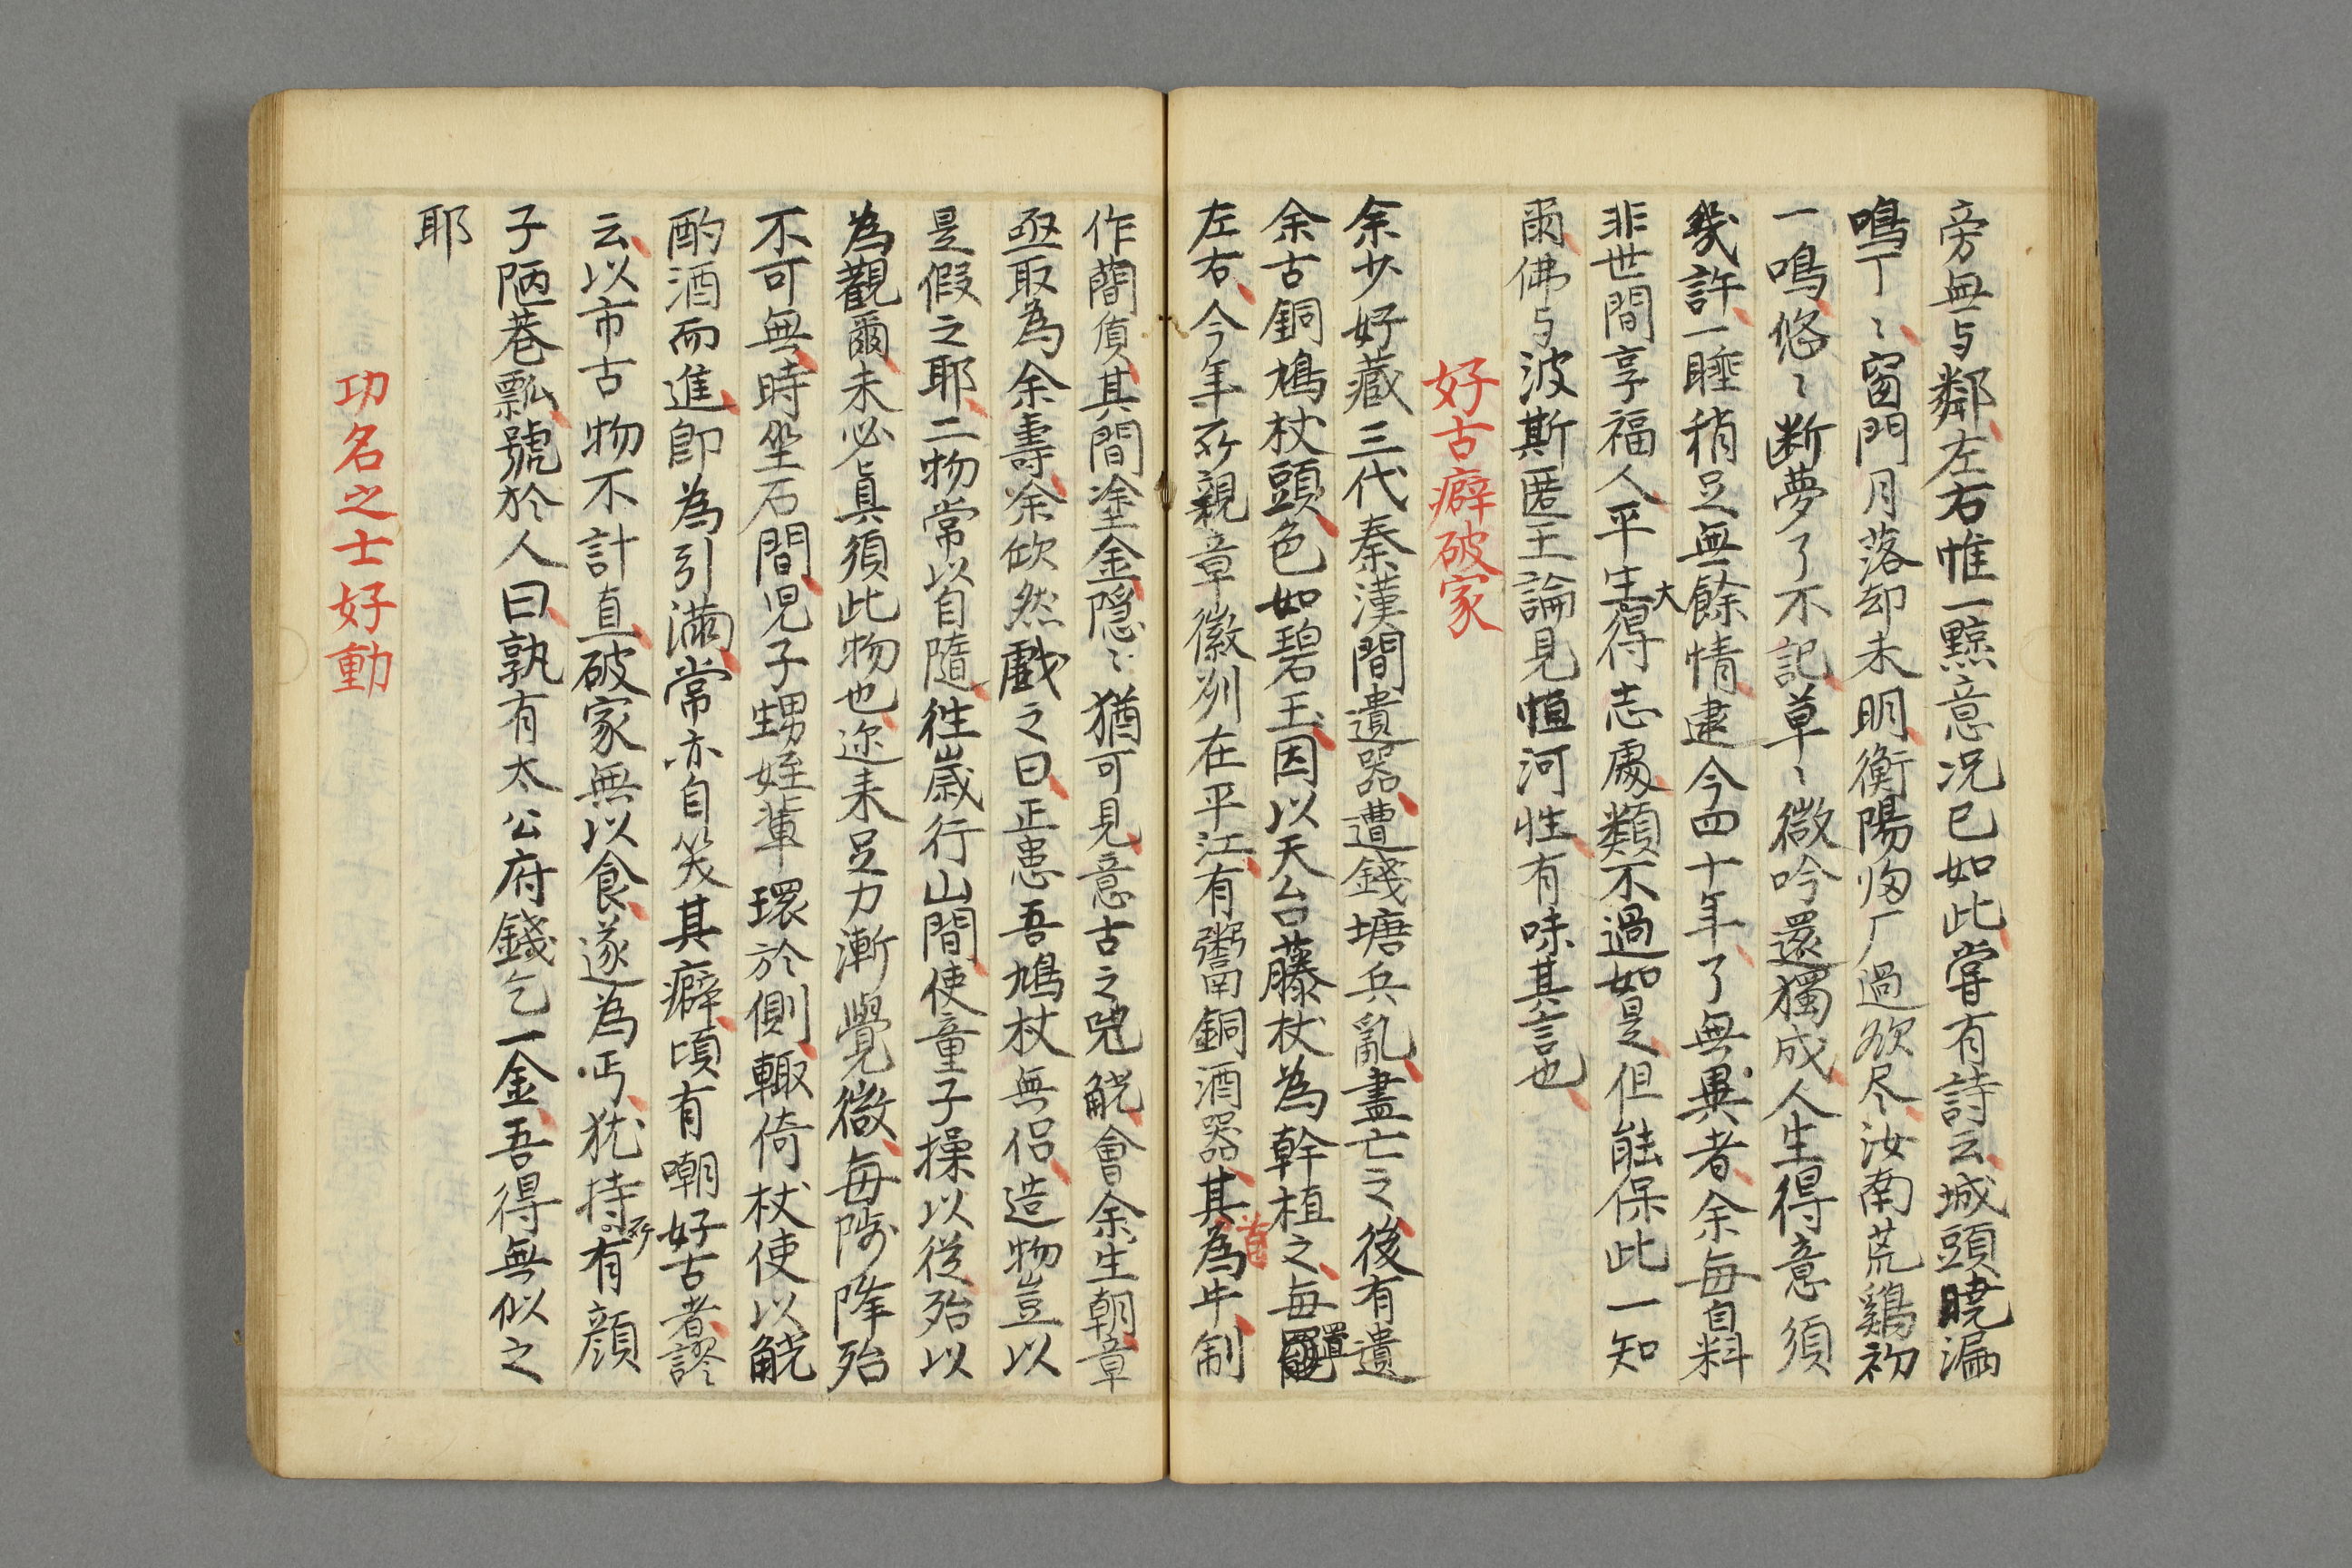 旁無与鄰左右惟一點意况已如此嘗有詩云城頭曉漏
鳴丁〻窗門月落却未明衡陽歸厂過欲尽汝南荒鷄初
一鳴悠〻断夢了不記草〻微吟還獨成人生得意須
幾許一睡稍足無餘情逮今四十年了無異者余每自料
非世間享福人平生大得志處類不過如是但能保此一知
爾佛与波斯匿王論見恒河性有味其言也
好古癖破家
余少好藏三代秦漢間遺器遭錢塘兵亂盡亡之後有遺
余古銅鳩杖頭色如碧玉因以天台藤杖為幹植之每置
左右今年所親章徽列在平江有鬻南銅酒器其首為牛制
作簡傎其間塗金隱〻猶可見意古之兕觥會余生朝章
亟取為余壽余欣然戲之曰正患吾鳩杖無侶造物豈以
是假之耶二物常以自隨徃歲行山間使童子操以從殆以
為觀爾未必真須此物也迩来足力漸覺微每陟降殆
不可無時坐石間児子甥姪輩環於側輙倚杖使以觥
酌酒而進即為引滿常亦自笑其癖頃有嘲好古者謬
云以市古物不計直破家無以食遂為丐犹持所有顔
子陋巷瓢號於人曰孰有太公府錢乞一金吾得無似之
耶
功名之士好動